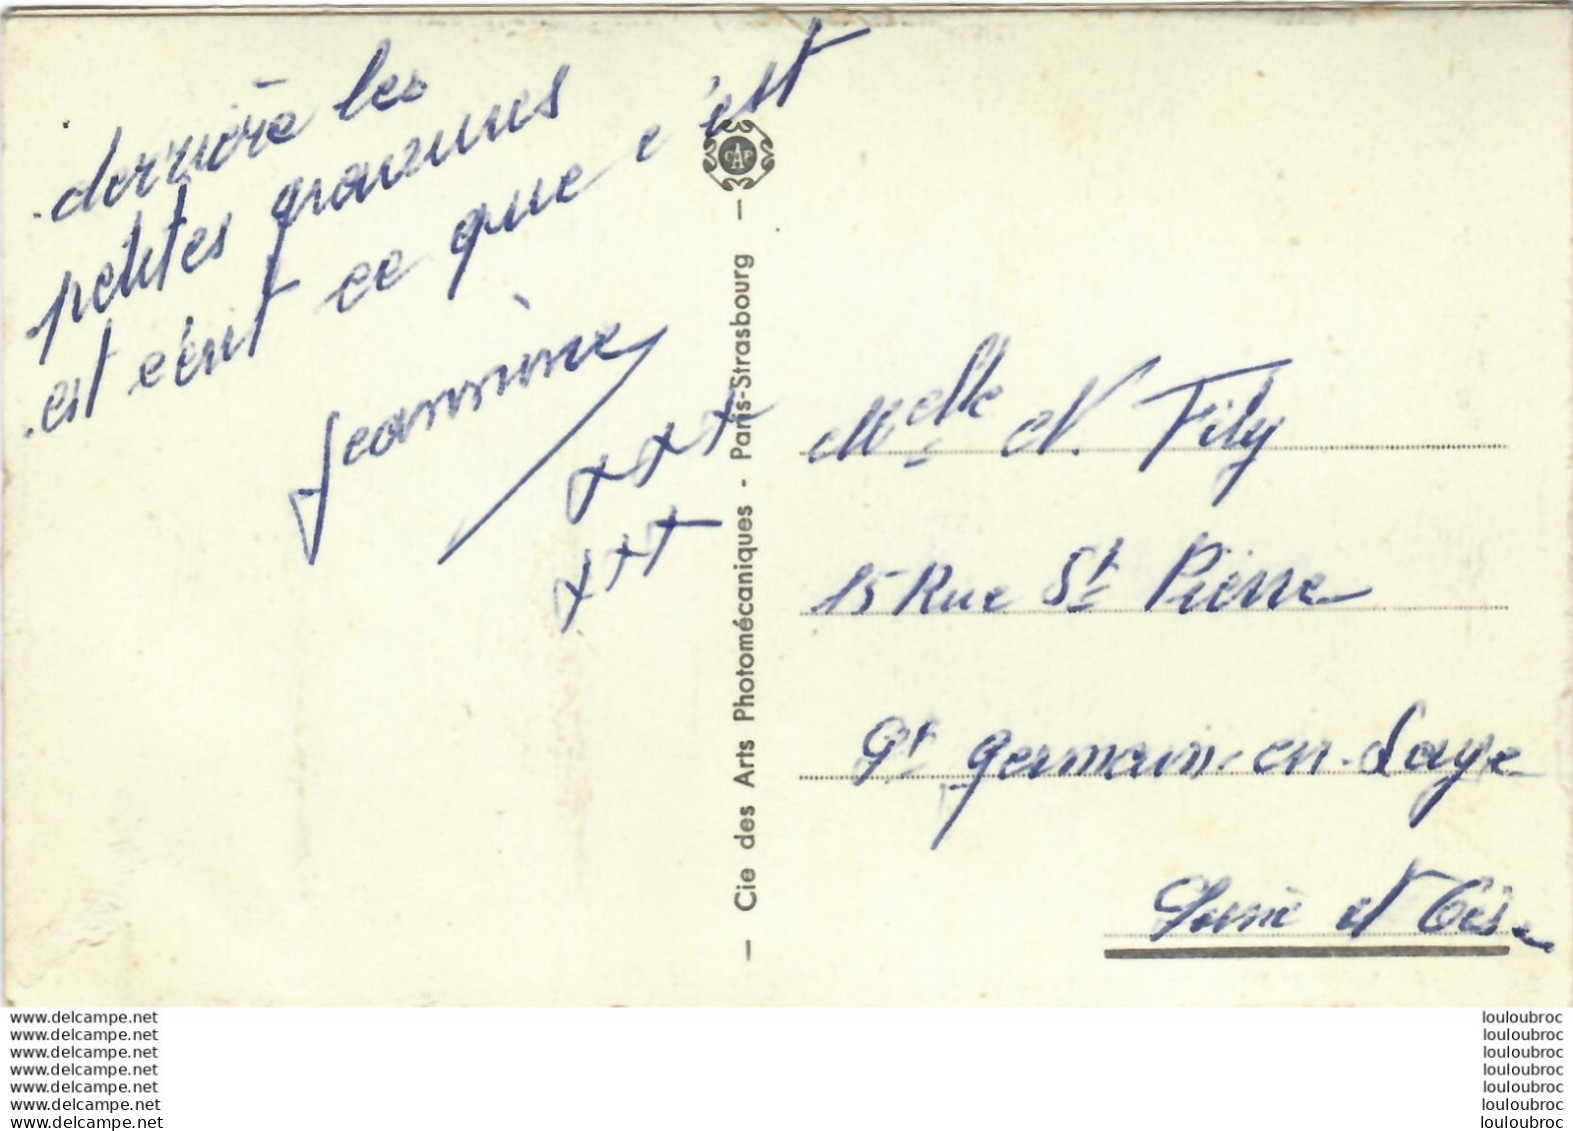 derrière les
petites gravures
est écrit ce que c'est
Jeannine
xxx
xxx
CAP
— Cie des Arts Photomécaniques - Paris-Strasbourg —
Melle N. Fily
15 Rue St Pierre
St Germain-en-Laye
Seine et Oise
www.delcampe.net
www.delcampe.net
www.delcampe.net
www.delcampe.net
www.delcampe.net
www.delcampe.net
www.delcampe.net
louloubroc
louloubroc
louloubroc
louloubroc
louloubroc
louloubroc
louloubroc